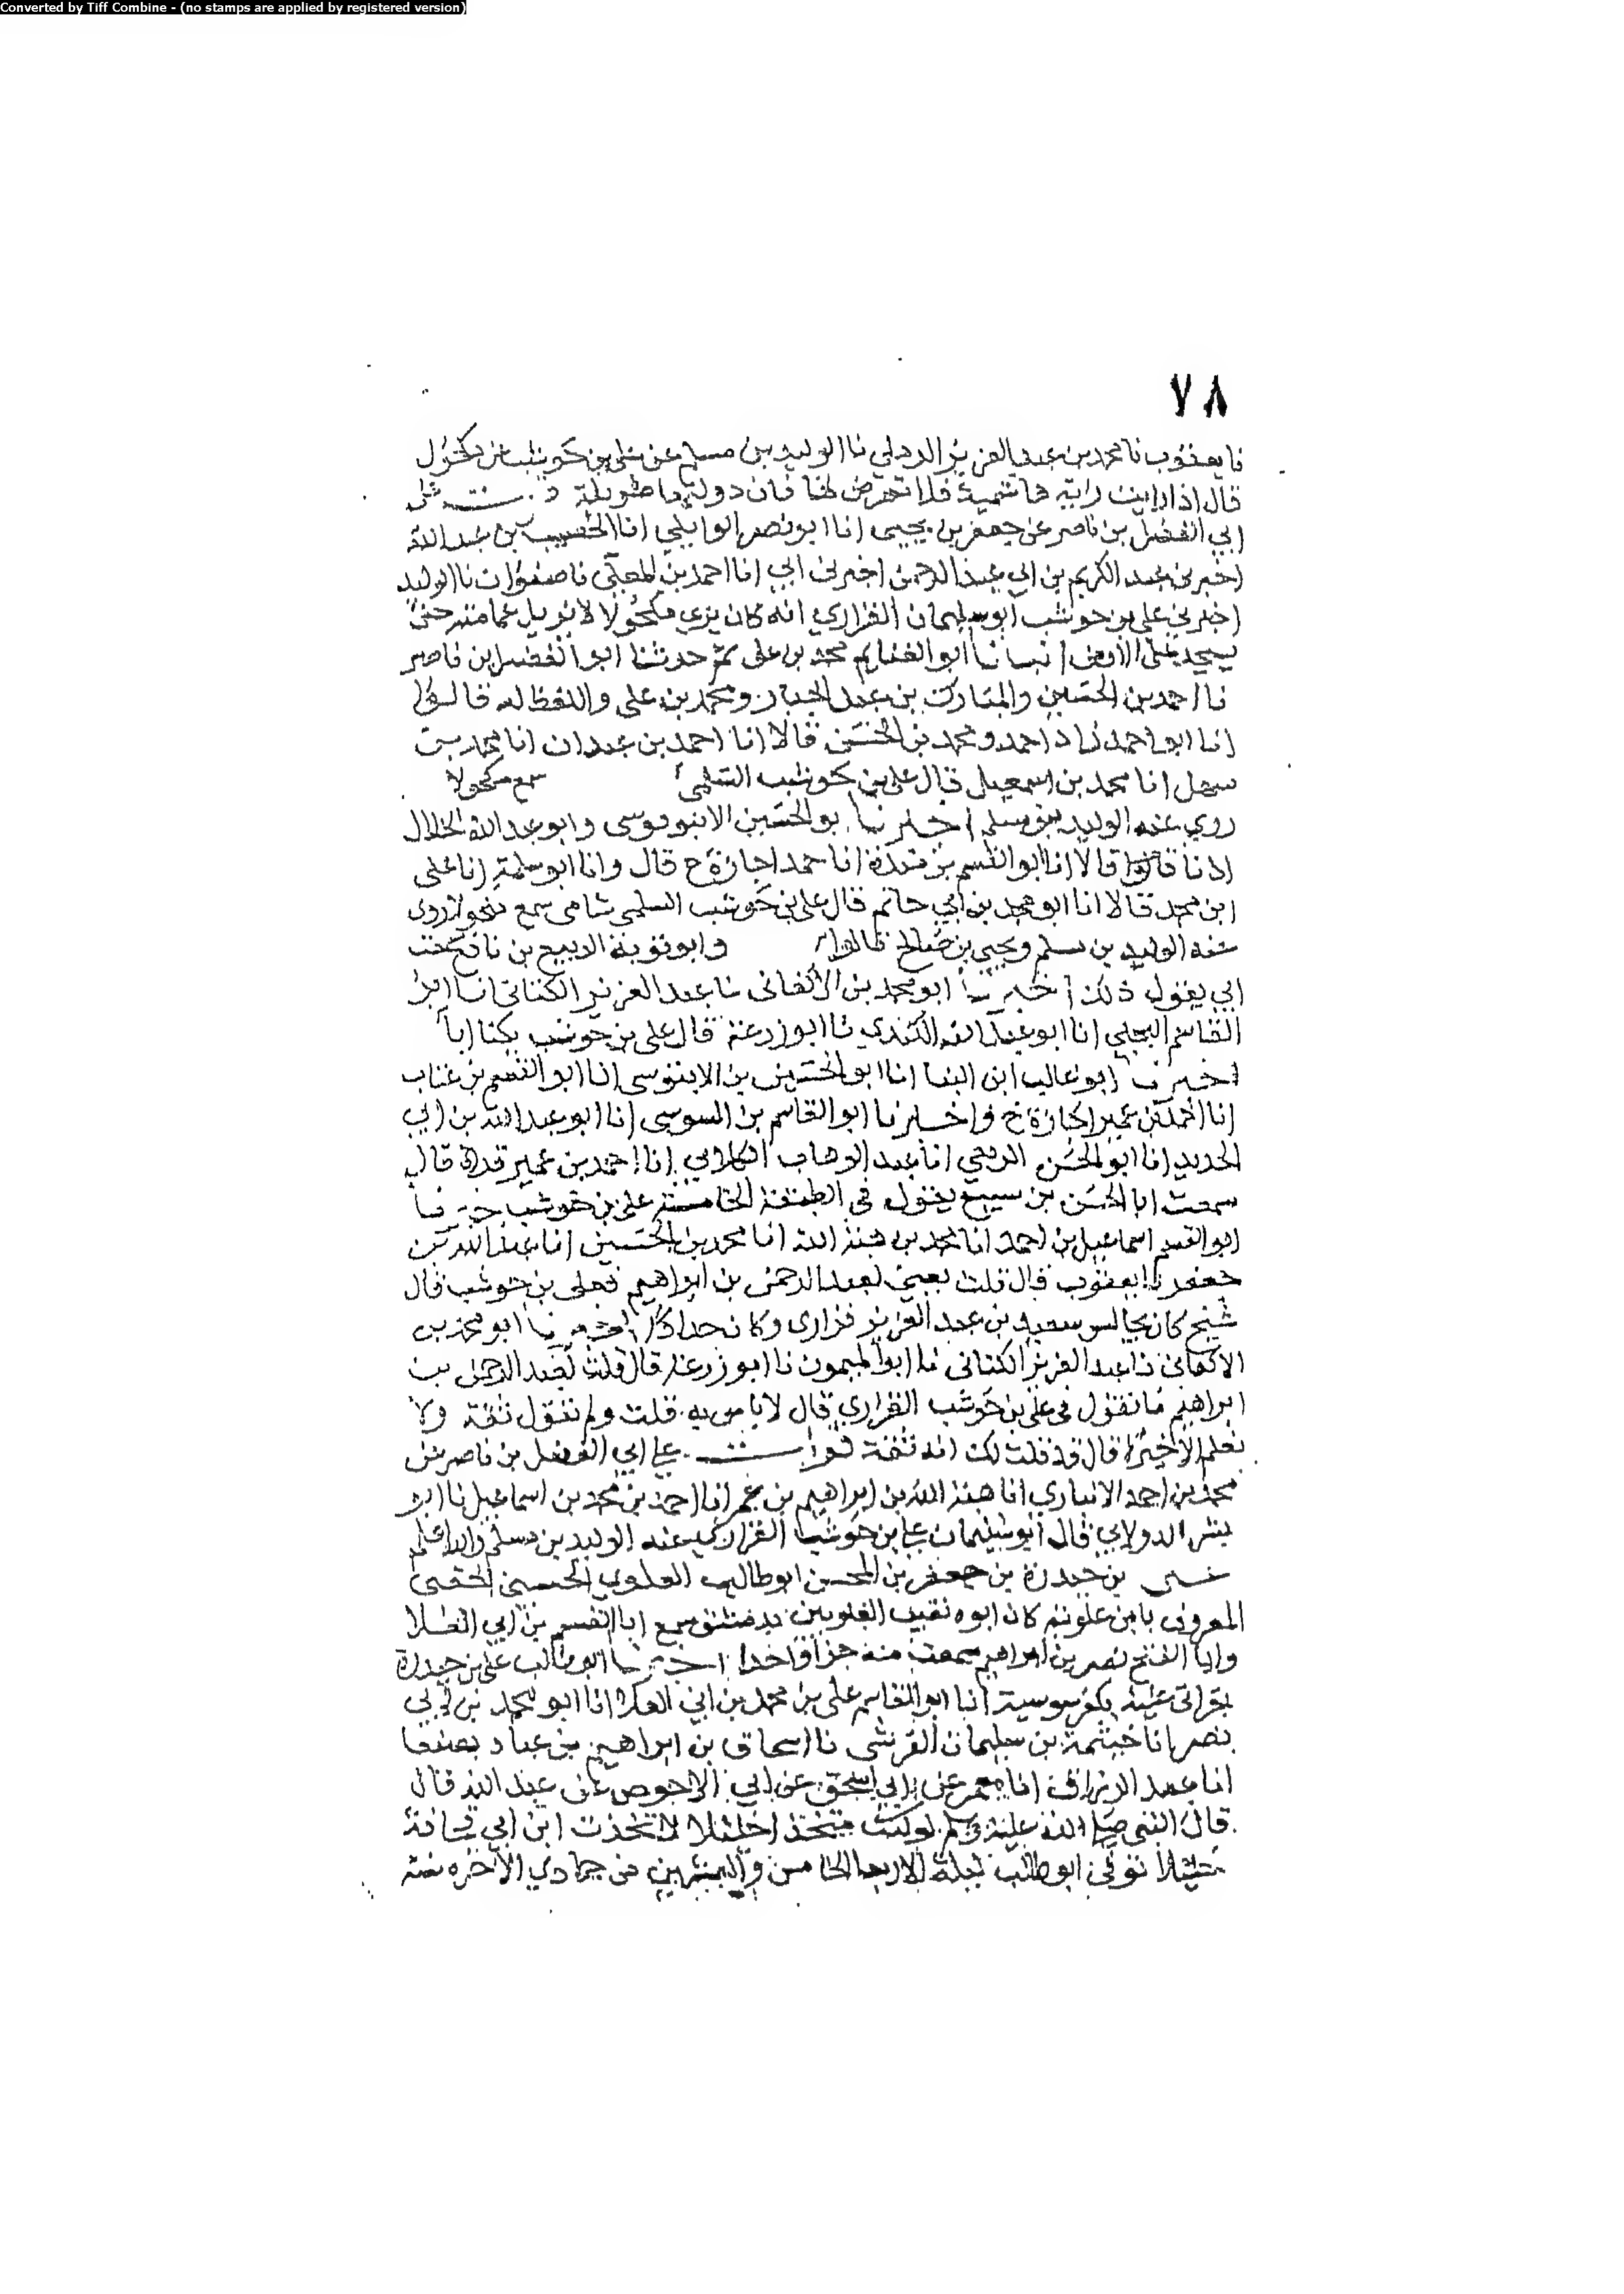 Converted by Tiff Combine - (no stamps are applied by registered version)
٧٨
نا يعقوب نا محمد بن عبد العزيز الرملي نا الوليد بن مسلم عن علي بن حوشب عن مكحول
قال اذا رايت راية هاشمية فلا تعرض لها فان دولتها طويلة على
ابي الفضل بن ناصر عن جعفر بن يحيى انا ابو نصر الوايلي انا الخصيب بن عبد الله
اخبرني عبد الكريم بن ابي عبد الرحمن اخبرني ابي انا احمد بن المعلى نا صفوان نا الوليد
اخبرني علي بن حوشب ابو سليمان الفزاري انه كان يرى مكحولا لا يزيل عمامته حتى
يسجد على الارض انبانا ابو الغنايم محمد بن علي ثم حدثنا ابو الفضل بن ناصر
نا احمد بن الحسين والمبارك بن عبد الجبار ومحمد بن علي واللفظ له قالوا
انا ابو احمد زاد احمد ومحمد بن الحسن قالا انا احمد بن عبدان انا محمد بن
سهل انا محمد بن اسمعيل قال علي بن حوشب السلمي سمع مكحولا
روى عنه الوليد بن مسلم اخبرنا بو الحسين الابنوسى وابو عبد الله الخلال
اذنا قالا انا ابو القسم بن مندة انا حمد اجازة ح قال وانا ابو سلمة انا علي
ابن محمد قالا انا ابو محمد بن ابي حاتم قال علي بن حوشب السلمي شامي سمع مكحولا روى
عنه الوليد بن مسلم ويحيى بن صالح وابو توبة الربيع بن نافع سمعت
ابي يقول ذلك اخبرنا ابو محمد بن الاكفاني نا عبد العزيز الكتاني انا ابو
القاسم البجلي انا ابو عبد الله الكندي نا ابو زرعة قال علي بن حوشب يكنا ابا
اخبرنا ابو غالب ابن البنا انا ابو الحسين بن الابنوسى انا ابو القسم بن عتاب
انا احمد بن عمير اجازة ح واخبرنا ابو القاسم بن السوسي انا ابو عبد الله بن ابي
الحديد انا ابو الحسن الربعي انا عبد الوهاب الكلابي انا احمد بن عمير قراة قال
سمعت ابا الحسن بن سميع يقول في الطبقة الخامسة علي بن حوشب اخبرنا
ابو القسم اسماعيل بن احمد انا محمد بن هبة الله انا محمد بن الحسين انا عبد الله بن
جعفر نا يعقوب قال قلت يعني لعبد الرحمن بن ابراهيم فعلي بن حوشب قال
شيخ كان يجالس سعيد بن عبد العزيز فزارى وكان اخبرنا ابو محمد بن
الاكفاني نا عبد العزيز الكتاني انا ابو الميمون نا ابو زرعة قال قلت لعبد الرحمن بن
ابراهيم ما تقول في علي بن حوشب الفزاري قال لا باس به قلت ولم تقول ثقة ولا
نعلم الا خيرا قال قد قلت لك انه ثقة قرات على ابي الفضل بن ناصر عن
محمد بن احمد الانباري انا هبة الله بن ابراهيم بن عمر انا احمد بن محمد بن اسماعيل نا ابو
بشر الدولابي قال ابو سليمان علي بن حوشب الفزاري عنه الوليد بن مسلم والله اعلم
علي بن حيدرة بن جعفر بن المحسن ابو طالب العلوي الحسيني
المعروف بابن علوية كان ابوه نقيب العلويين بدمشق سمع ابا القسم بن ابي العلا
وابا الفتح نصر بن ابراهيم سمعت منه جزا واحدا اخبرنا ابو طالب علي بن حيدرة
بقراتي عليه بكفرسوسية انا ابو القاسم علي بن محمد بن ابي العلا انا ابو محمد بن ابي
نصر انا خيثمة بن سليمان القرشي نا اسحاق بن ابراهيم بن عباد بصنعا
انا عبد الرزاق انا معمر عن ابي اسحق عن ابي الاحوص عن عبد الله قال
قال النبي صلى الله عليه وسلم لو كنت متخذا خليلا لاتخذت ابن ابي قحافة
خليلا توفي ابو طالب ليلة الاربعا الخامس والعشرين من جمادي الاخره سنة